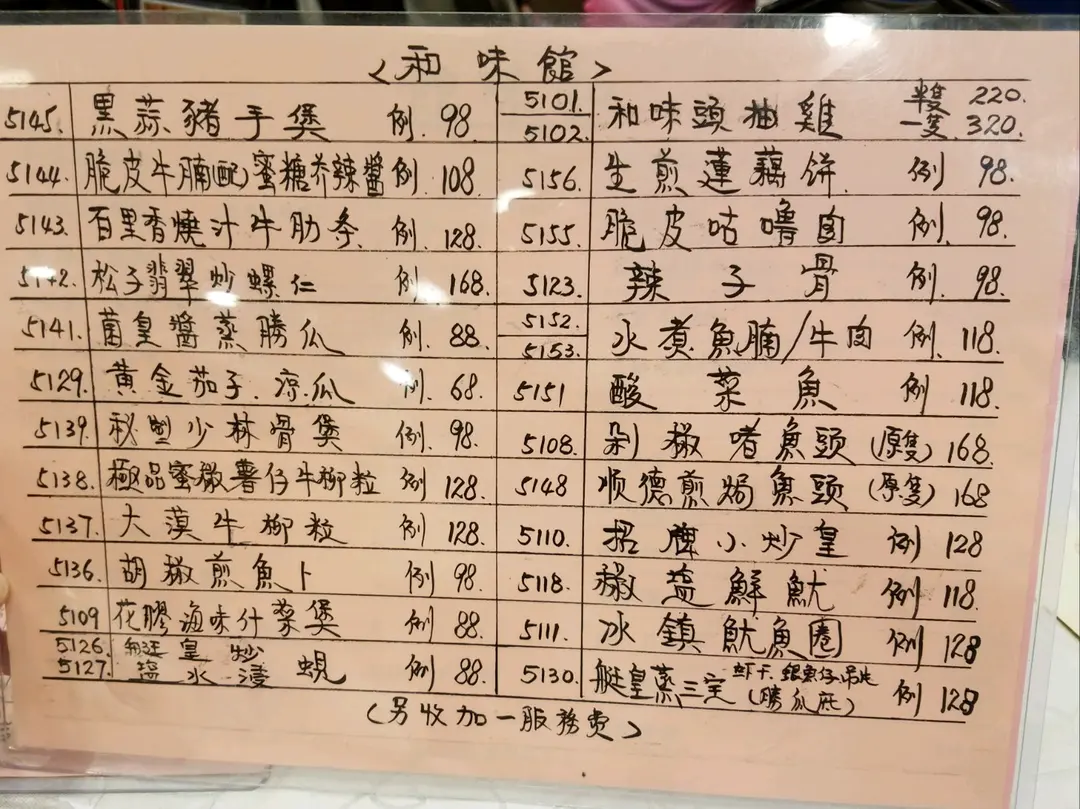 <和味館>
5145. 黑蒜豬手煲 例. 98.
5144. 脆皮牛腩(配)蜜糖芥辣醬 例. 108.
5143. 百里香燒汁牛肋条 例. 128.
5142. 松子翡翠炒螺仁 例. 168.
5141. 菌皇醬蒸勝瓜 例. 88.
5129. 黄金茄子.凉瓜 例. 68.
5139. 秘塱少林骨煲 例. 98.
5138. 極品蜜椒薯仔牛柳粒 例 128.
5137. 大漠牛柳粒 例 128.
5136. 胡椒煎魚卜 例 98.
5109 花膠海味什菜煲 例 88.
5126. 皇炒
5127. 塩水浸蜆 例 88.
5101. 和味頭抽雞 半隻 220.
5102. 一隻. 320.
5156. 生煎蓮藕饼. 例 98.
5155. 脆皮咕嚕肉 例. 98.
5123. 辣子骨 例. 98.
5152. 水煮魚腩/牛肉 例. 118.
5153.
5151 酸菜魚 例 118.
5108. 剁椒啫魚頭(原隻) 168.
5148 顺德煎焗魚頭(原隻) 168
5110. 招牌小炒皇 例 128
5118. 椒塩鮮魷 例 118.
5111. 冰鎮魷魚圈 例 128
5130. 艇皇蒸三宝 虾干.銀魚仔.吊片
(勝瓜底) 例 128
(另收加一服務费)